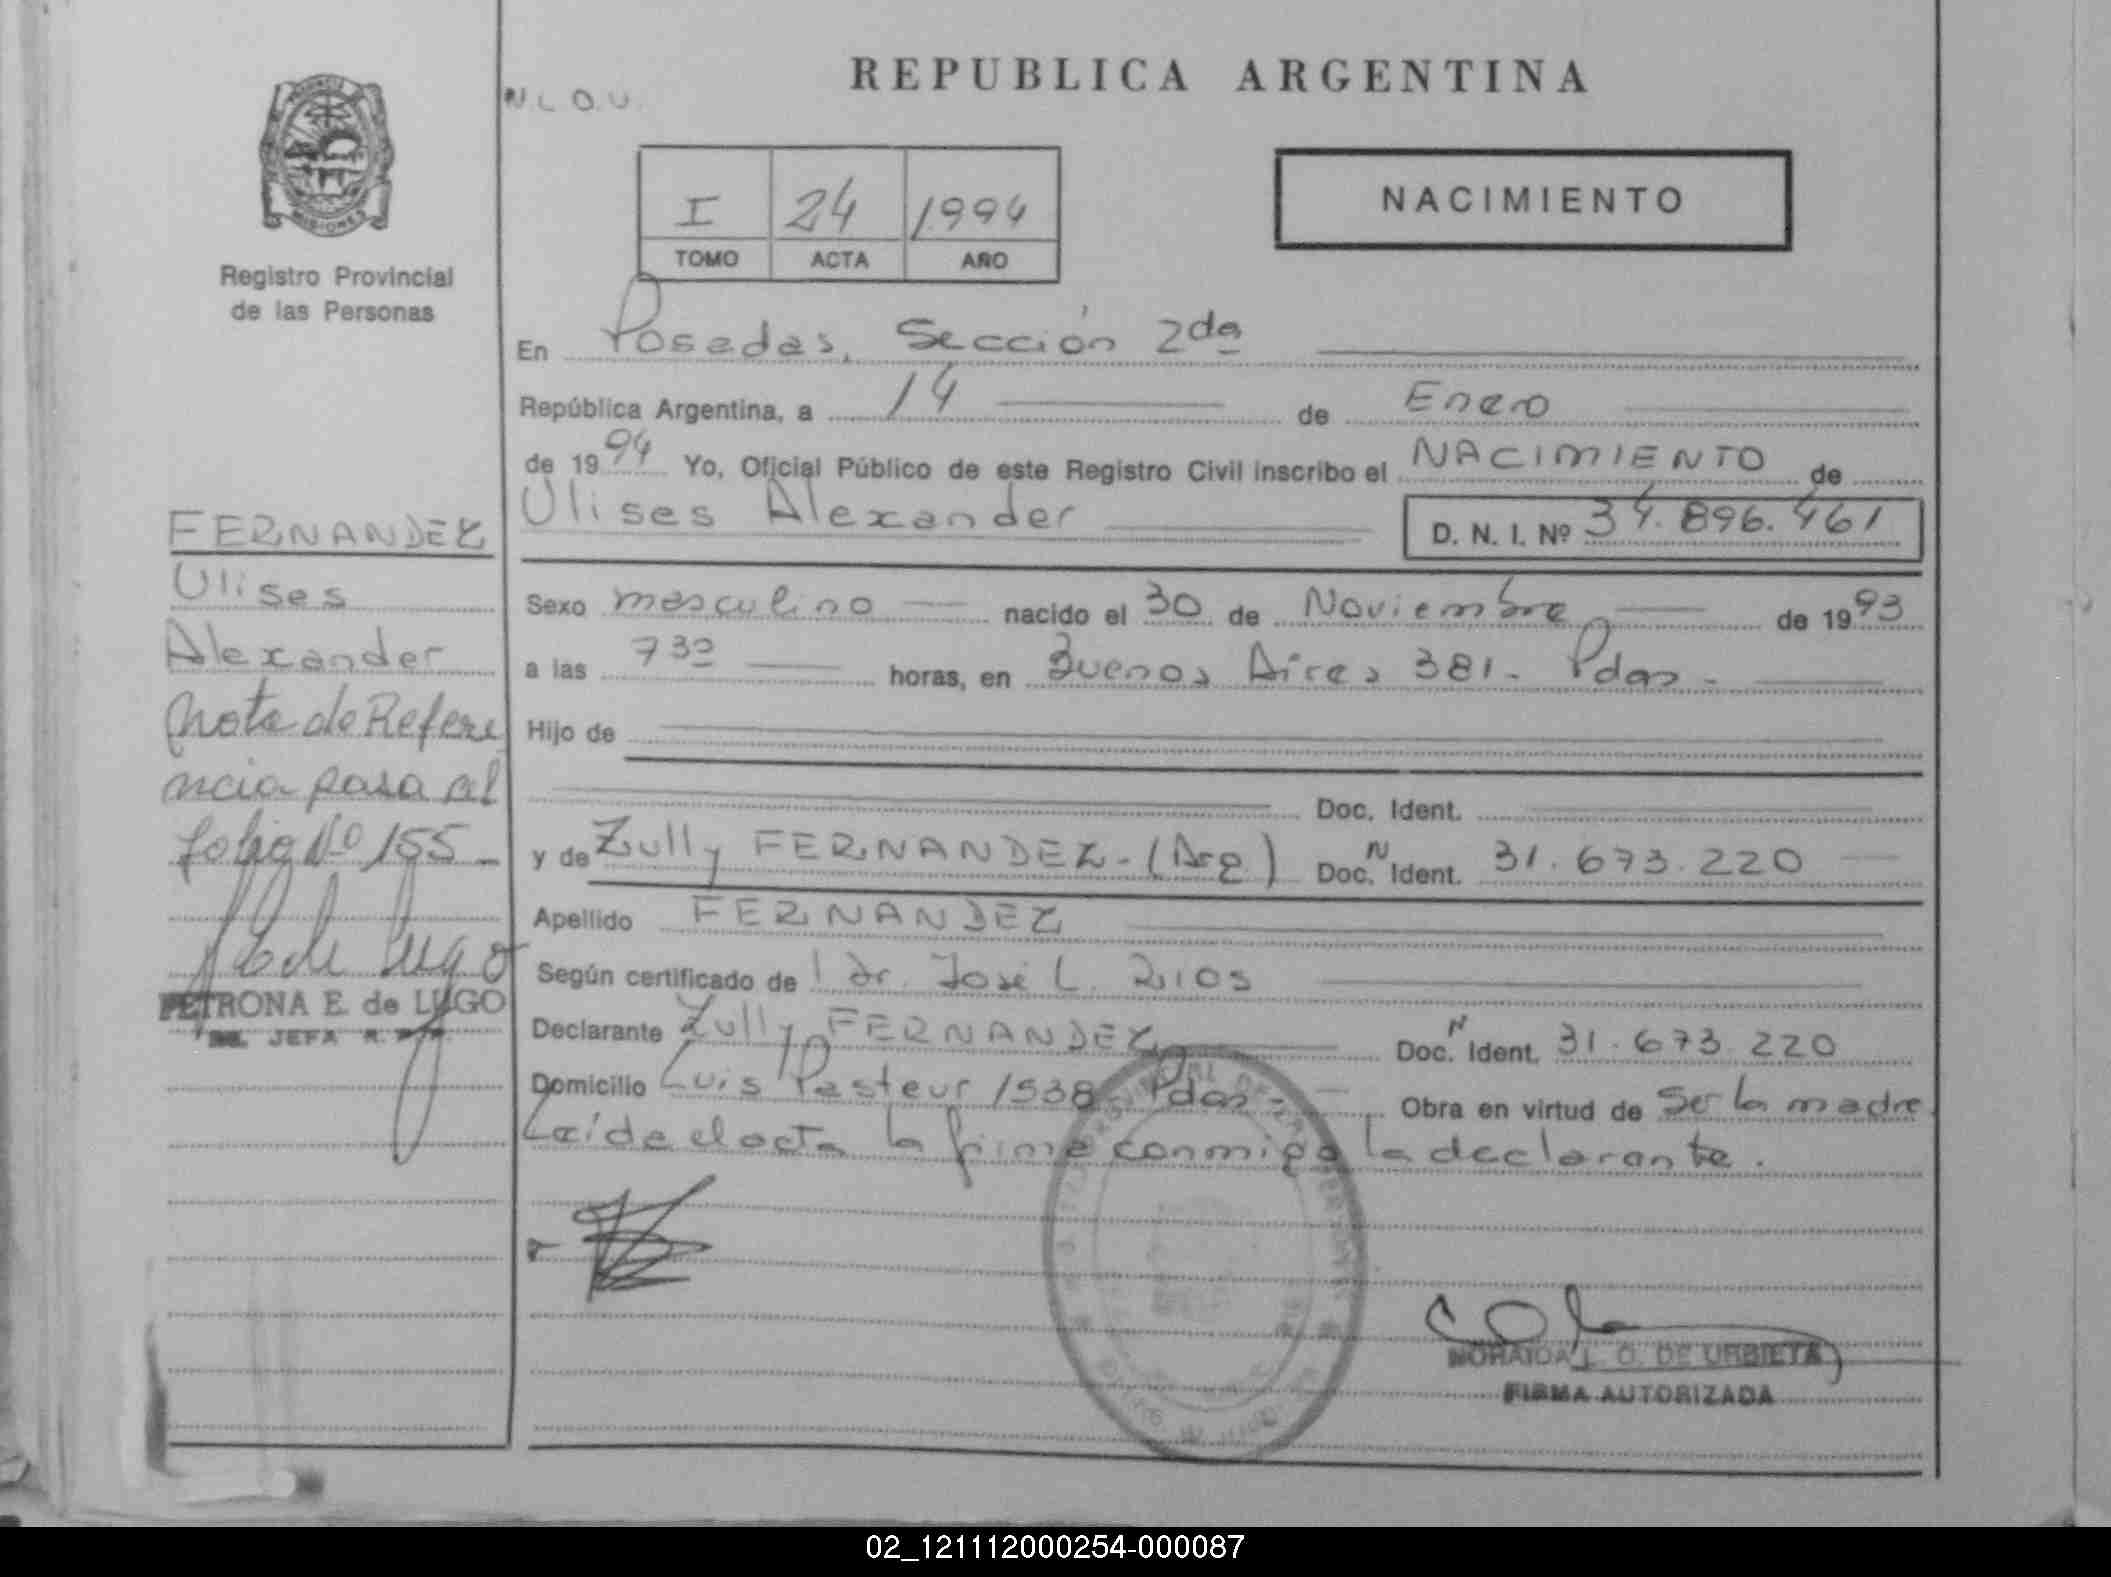 REPUBLICA ARGENTINA
N L O U
I 24 1994
TOMO ACTA AÑO
NACIMIENTO
MISIONES
Registro Provincial
de las Personas
En Posadas, Sección 2da
República Argentina, a 14 de Enero
de 1994 Yo, Oficial Público de este Registro Civil inscribo el NACIMIENTO de
Ulises Alexander D. N. I. Nº 34.896.461
Sexo masculino nacido el 30 de Noviembre de 1993
a las 7 30 horas, en Buenos Aires 381 - Pdas -
Hijo de
Doc. Ident.
y de Zully FERNANDEZ - (Arg) Doc. N Ident. 31.673.220
Apellido FERNANDEZ
Según certificado de Dr. José L. Rios
Declarante Zully FERNANDEZ Doc. N Ident. 31.673.220
Domicilio Luis Pasteur 1538 Pdas - Obra en virtud de Ser la madre
Leída el acta la firma conmigo la declarante.
FERNANDEZ
Ulises
Alexander
Nota de Refere
ncia pasa al
folio Nº 155 -
PETRONA E. de LUGO
JEFA
NORAIDA L. O. DE URBIETA
FIRMA AUTORIZADA
02_121112000254-000087